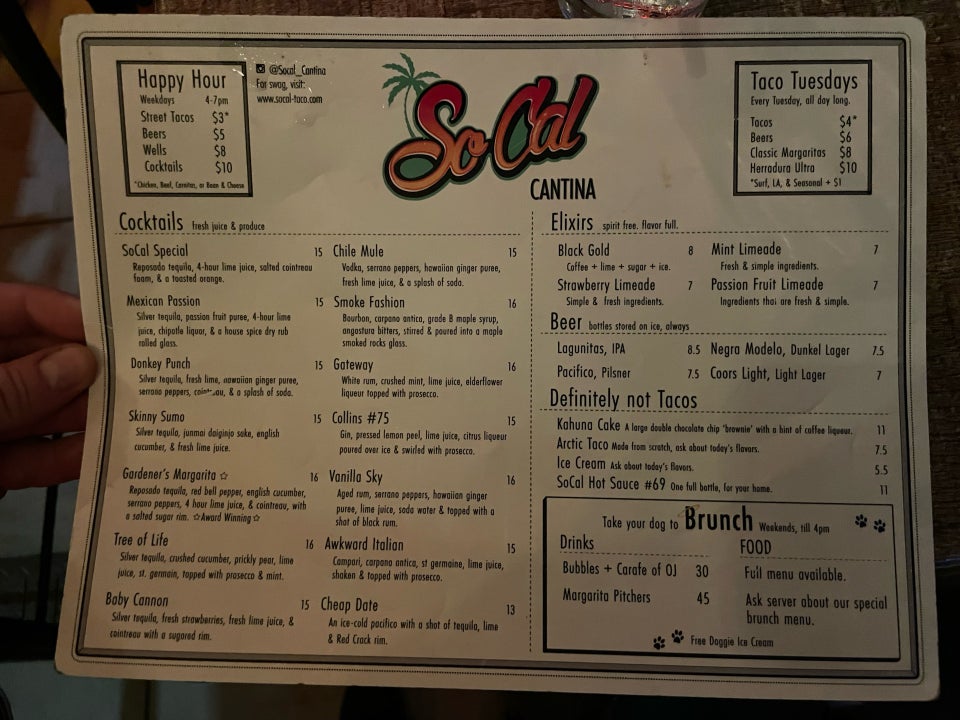 Happy Hour
Weekdays 4-7pm
Street Tacos $3*
Beers $5
Wells $8
Cocktails $10
*Chicken, Beef, Carnitas, or Bean & Cheese
@Socal_Cantina
For swag, visit:
www.socal-taco.com
So Cal
CANTINA
Taco Tuesdays
Every Tuesday, all day long.
Tacos $4*
Beers $6
Classic Margaritas $8
Herradura Ultra $10
*Surf, LA, & Seasonal + $1
Cocktails fresh juice & produce
SoCal Special 15
Reposado tequila, 4-hour lime juice, salted cointreau
foam, & a toasted orange.
Mexican Passion 15
Silver tequila, passion fruit puree, 4-hour lime
juice, chipotle liquor, & a house spice dry rub
rolled glass.
Donkey Punch 15
Silver tequila, fresh lime, hawaiian ginger puree,
serrano peppers, cointreau, & a splash of soda.
Skinny Sumo 15
Silver tequila, junmai daiginjo sake, english
cucumber, & fresh lime juice.
Gardener's Margarita ☆ 16
Reposado tequila, red bell pepper, english cucumber,
serrano peppers, 4 hour lime juice, & cointreau, with
a salted sugar rim. ☆Award Winning☆
Tree of Life 16
Silver tequila, crushed cucumber, prickly pear, lime
juice, st. germain, topped with prosecco & mint.
Baby Cannon 15
Silver tequila, fresh strawberries, fresh lime juice, &
cointreau with a sugared rim.
Chile Mule 15
Vodka, serrano peppers, hawaiian ginger puree,
fresh lime juice, & a splash of soda.
Smoke Fashion 16
Bourbon, carpano antica, grade B maple syrup,
angostura bitters, stirred & poured into a maple
smoked rocks glass.
Gateway 16
White rum, crushed mint, lime juice, elderflower
liqueur topped with prosecco.
Collins #75 15
Gin, pressed lemon peel, lime juice, citrus liqueur
poured over ice & swirled with prosecco.
Vanilla Sky 16
Aged rum, serrano peppers, hawaiian ginger
puree, lime juice, soda water & topped with a
shot of black rum.
Awkward Italian 15
Campari, carpano antica, st germaine, lime juice,
shaken & topped with prosecco.
Cheap Date 13
An ice-cold pacifico with a shot of tequila, lime
& Red Crack rim.
Elixirs spirit free. flavor full.
Black Gold 8
Coffee + lime + sugar + ice.
Strawberry Limeade 7
Simple & fresh ingredients.
Mint Limeade 7
Fresh & simple ingredients.
Passion Fruit Limeade 7
Ingredients that are fresh & simple.
Beer bottles stored on ice, always
Lagunitas, IPA 8.5
Pacifico, Pilsner 7.5
Negra Modelo, Dunkel Lager 7.5
Coors Light, Light Lager 7
Definitely not Tacos
Kahuna Cake A large double chocolate chip 'brownie' with a hint of coffee liqueur. 11
Arctic Taco Made from scratch, ask about today's flavors. 7.5
Ice Cream Ask about today's flavors. 5.5
SoCal Hot Sauce #69 One full bottle, for your home. 11
Take your dog to Brunch Weekends, till 4pm
Drinks
Bubbles + Carafe of OJ 30
Margarita Pitchers 45
FOOD
Full menu available.
Ask server about our special
brunch menu.
Free Doggie Ice Cream